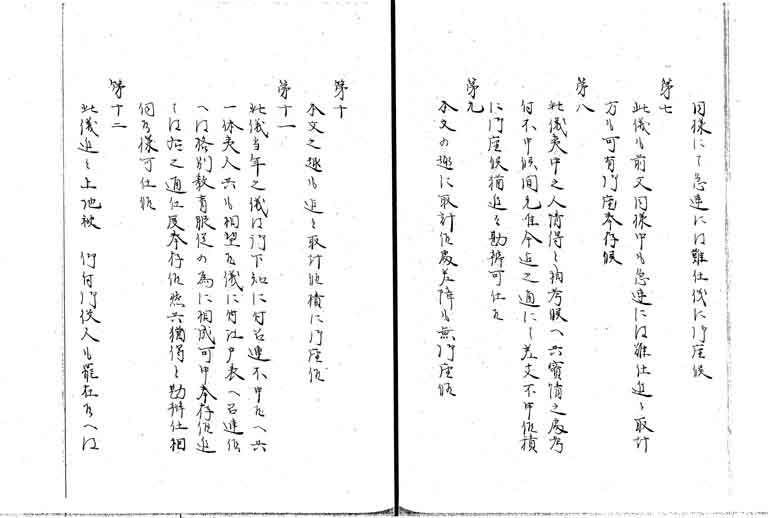 同様にて急速には難仕儀に御座候
第七
此儀も前文同様中々急速には難仕追々取計
方も可有御座奉存候
第八
此儀夷中之人情得と相考候へ共實情之處考
付不申候間先唯今迄之通にて差支不申候積
に御座候猶追々勘辨可仕候
第九
本文の趣に取計候處差障も無御座候
第十
本文之趣も追々取計候積に御座候
第十一
此儀当年之儀は御下知に付召連不申候へ共
一体夷人共も相望候儀に付江戸表へ召連候
へは格別教育服従の為に相成可申奉存候追
ては先之通仕度奉存候然共猶得と勘辨仕相
伺候様可仕候
第十二
此儀追々上地被 仰付御役人も罷在候へは